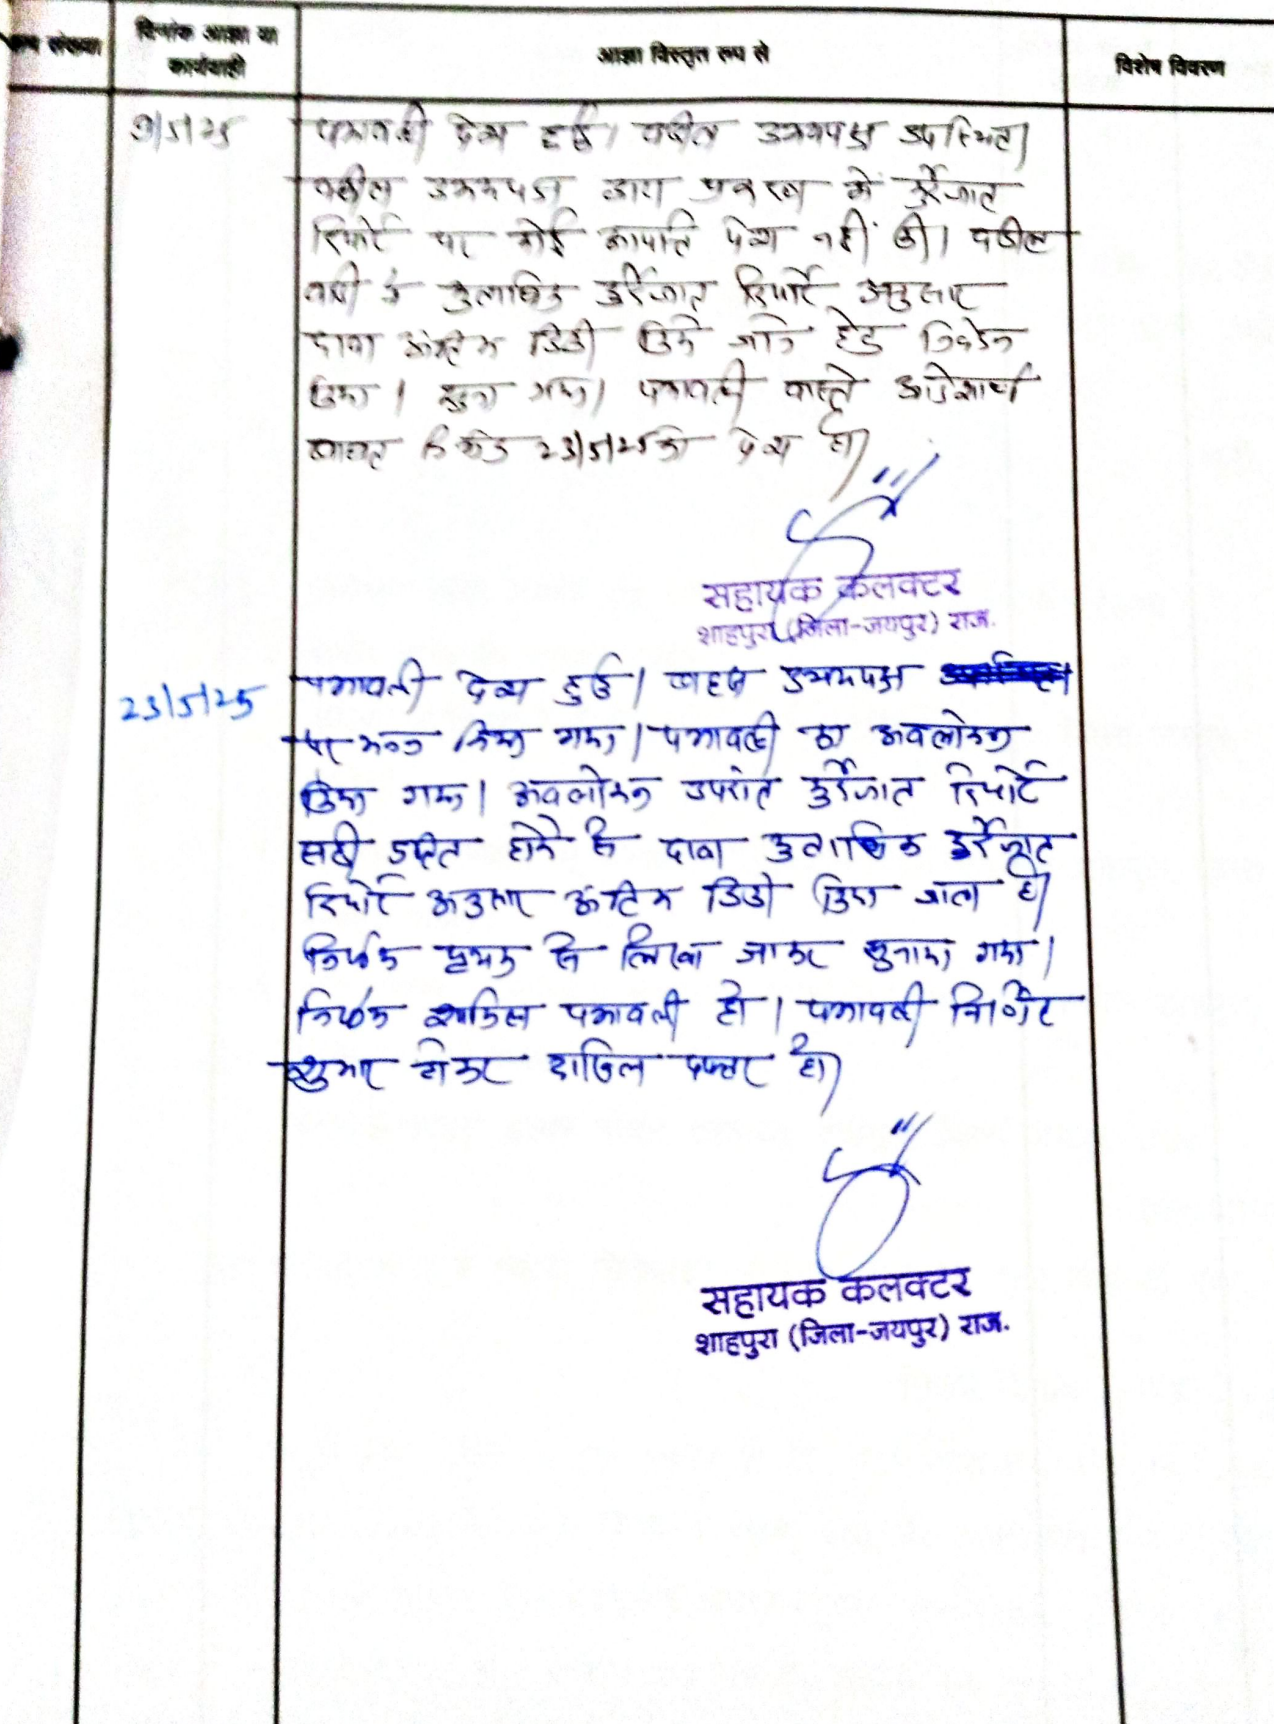 संख्या
दिनांक आज्ञा या कार्यवाही
आज्ञा विस्तृत रूप से
विशेष विवरण
9/5/25
पत्रावली पेश हुई। वकील उभयपक्ष उपस्थित।
वकील उभयपक्ष द्वारा प्रकरण में कुर्रेजात
रिपोर्ट पर कोई आपत्ति पेश नहीं की। वकील
वादी ने मुताबिक कुर्रेजात रिपोर्ट अनुसार
दावा अंतिम डिक्री किये जाने हेतु निवेदन
किया। सुना गया। पत्रावली वास्ते आदेशार्थ
दिनांक 23/5/25 को पेश हो।
सहायक कलक्टर
शाहपुरा (जिला-जयपुर) राज.
23/5/25
पत्रावली पेश हुई। बहस उभयपक्ष
पर मनन किया गया। पत्रावली का अवलोकन
किया गया। अवलोकन उपरांत कुर्रेजात रिपोर्ट
सही प्रतीत होने से दावा मुताबिक कुर्रेजात
रिपोर्ट अनुसार अंतिम डिक्री किया जाता है।
निर्णय पृथक से लिखा जाकर सुनाया गया।
निर्णय शामिल पत्रावली हो। पत्रावली
शुमार होकर दाखिल दफ्तर हो।
सहायक कलक्टर
शाहपुरा (जिला-जयपुर) राज.